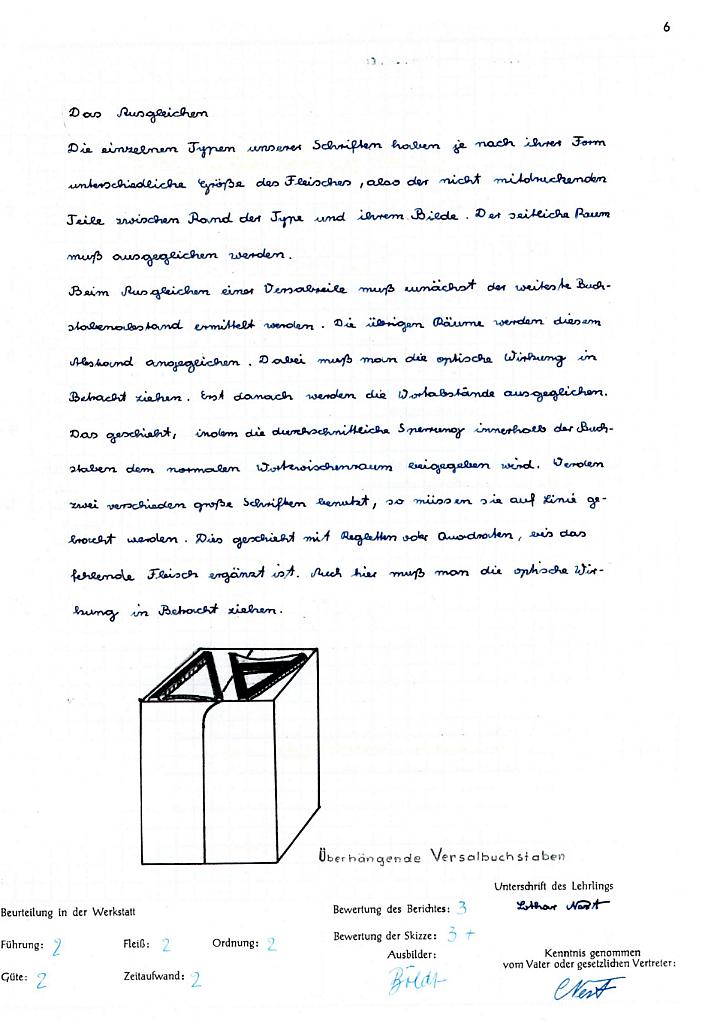 6
Das Ausgleichen
Die einzelnen Typen unserer Schriften haben je nach ihrer Form
unterschiedliche Größe des Fleisches, also der nicht mitdruckenden
Teile zwischen Rand der Type und ihrem Bilde. Der seitliche Raum
muß ausgeglichen werden.
Beim Ausgleichen einer Versalzeile muß zunächst der weiteste Buch-
stabenabstand ermittelt werden. Die übrigen Räume werden diesem
Abstand angeglichen. Dabei muß man die optische Wirkung in
Betracht ziehen. Erst danach werden die Wortabstände ausgeglichen.
Das geschieht, indem die durchschnittliche Sperrung innerhalb der Buch-
staben dem normalen Wortzwischenraum beigegeben wird. Werden
zwei verschieden große Schriften benutzt, so müssen sie auf Linie ge-
bracht werden. Dies geschieht mit Regletten oder Quadraten, bis das
fehlende Fleisch ergänzt ist. Auch hier muß man die optische Wir-
kung in Betracht ziehen.
Überhängende Versalbuchstaben
Unterschrift des Lehrlings
Beurteilung in der Werkstatt
Bewertung des Berichtes: 3
Lothar Nest
Führung: 2 Fleiß: 2 Ordnung: 2
Bewertung der Skizze: 3+
Ausbilder:
Kenntnis genommen
vom Vater oder gesetzlichen Vertreter:
Güte: 2 Zeitaufwand: 2
Böldt
Nest